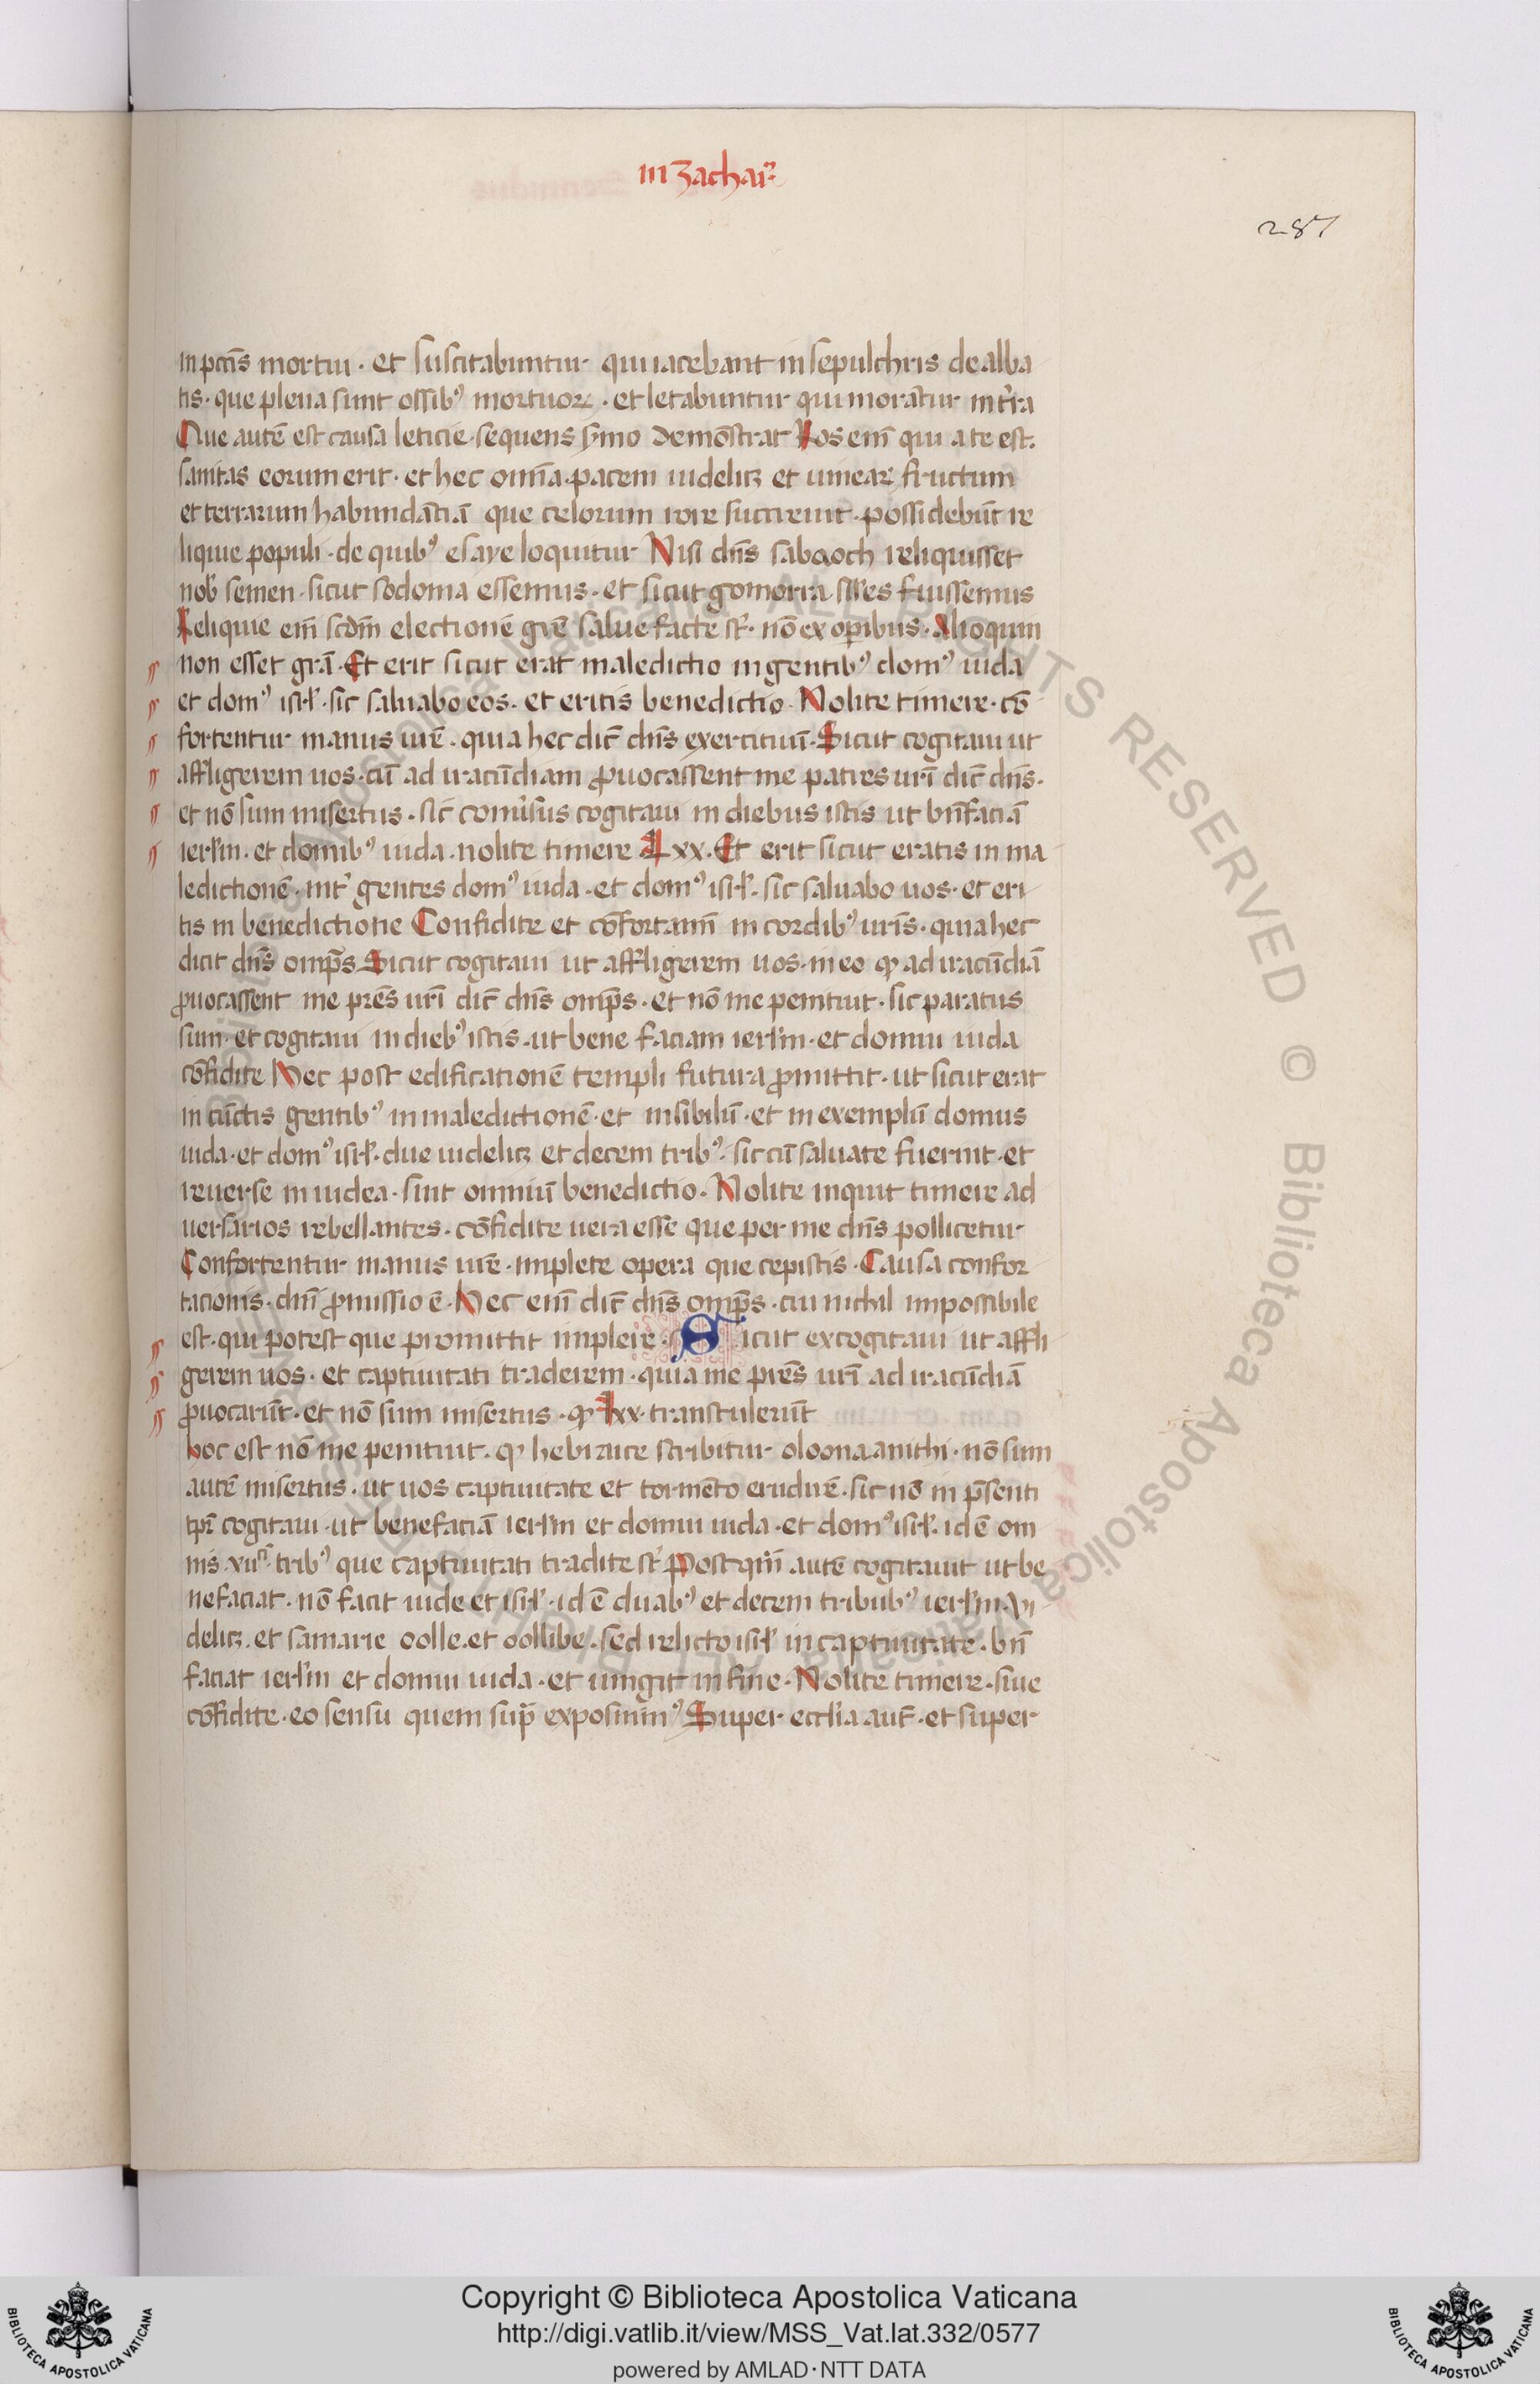 in Zachar̄
287
in pctīs mortui · et suscitabuntur qui iacebant in sepulchris dealba
tis · que plena sunt ossibꝰ mortuoꝝ · et letabuntur qui morāt̄ur in t̄ra
Que autē est causa leticie · sequens s̓mo demōstrat Ros eni̅ qui a te est.
sanitas eorum erit · et hec om̄ia · pacem uidelicꝫ et uinear̄ fructum
et terrarum habundātiā que celorum rore succreuit · possidebūt re
liquie populi · de quibꝰ esaye loquitur Nisi dn̄s sabaoth reliquisset
nob̓ semen · sicut sodoma essemus · et sicut gomorra sil̓es fuissemus
Reliquie eni̅ scd̄m electionē gr̄e salue facte st̓ · nō ex oꝑibus · Alioquin
non esset grā · Et erit sicut erat maledictio in gentibꝰ domꝰ iuda
et domꝰ isrl̓ · sic saluabo eos · et eritis benedictio · Nolite timere · cō
fortentur manus ur̄e · quia hec dic̄ dn̄s exercituū · Sicut cogitaui ut
affligerem uos · cū ad iracūdiam ꝓuocassent me patres ur̄i dic̄ dn̄s ·
et nō sum misertus · sic̄ conūsus cogitaui in diebus istis ut bn̄faciā
ierl̓m · et domibꝰ iuda · nolite timere Lxx · Et erit sicut eratis in ma
ledictionē · int̓ gentes domꝰ iuda · et domꝰ isrl̓ · sic saluabo uos · et eri
tis in benedictione Confidite et cōfortamī in cordibꝰ ur̄is · quia hec
dicit dn̄s omp̄s Sicut cogitaui ut affligerem uos · in eo ꝙ ad iracūdiā
ꝓuocassent me pr̄es ur̄i dic̄ dn̄s omp̄s · et nō me penituit · sic paratus
sum · et cogitaui in diebꝰ istis · ut bene faciam ierl̓m · et domui iuda
cōfidite Hec post edificationē templi futura ꝓmittit · ut sicut erat
in cūctis gentibꝰ in maledictionē · et in sibilū · et in exemplū domus
iuda · et domꝰ isrl̓ · due uidelicꝫ et decem tribꝰ · sic cū saluate fuerint · et
reuerse in iudea · sint omniū benedictio · Nolite inquit timere ad
uersarios rebellantes · cōfidite uera esse que per me dn̄s pollicetur
Confortentur manus ur̄e · implete opera que cepistis · Causa confor
tacionis · dn̄i ꝓmissio ē · Hec eni̅ dic̄ dn̄s omp̄s · cui nichil impossibile
est · qui potest que promittit implere · Sicut excogitaui ut affli
gerem uos · et captiuitati traderem · quia me pr̄es ur̄i ad iracūdiā
ꝓuocarūt · et nō sum misertus · ꝙ lxx · transtulerūt
hoc est nō me penituit · ꝙ hebraice scribitur oloona anithi · nō sum
autē misertus · ut uos captiuitate et tormēto erudirē · sic nō in p̄senti
tp̄r cogitaui · ut benefaciā ierl̓m et domui iuda · et domꝰ isrl̓ · id ē om
nis · xii · tribꝰ que captiuitati tradite st̓ Postqm̄ autē cogitauit ut be
nefaciat · nō facit iude et isrl̓ · id ē duabꝰ et decem tribubꝰ ierl̓m · Vi
delicꝫ · et samarie oolle · et oollibe · sed relicto isrl̓ in captiuitate · bn̄
faciat ierl̓m et domui iuda · et iungit in fine · Nolite timere · siue
cōfidite · eo sensu quem sup̄ exposuimꝰ Super eccl̓ia aut̄ · et super
Copyright © Biblioteca Apostolica Vaticana
http://digi.vatlib.it/view/MSS_Vat.lat.332/0577
powered by AMLAD·NTT DATA